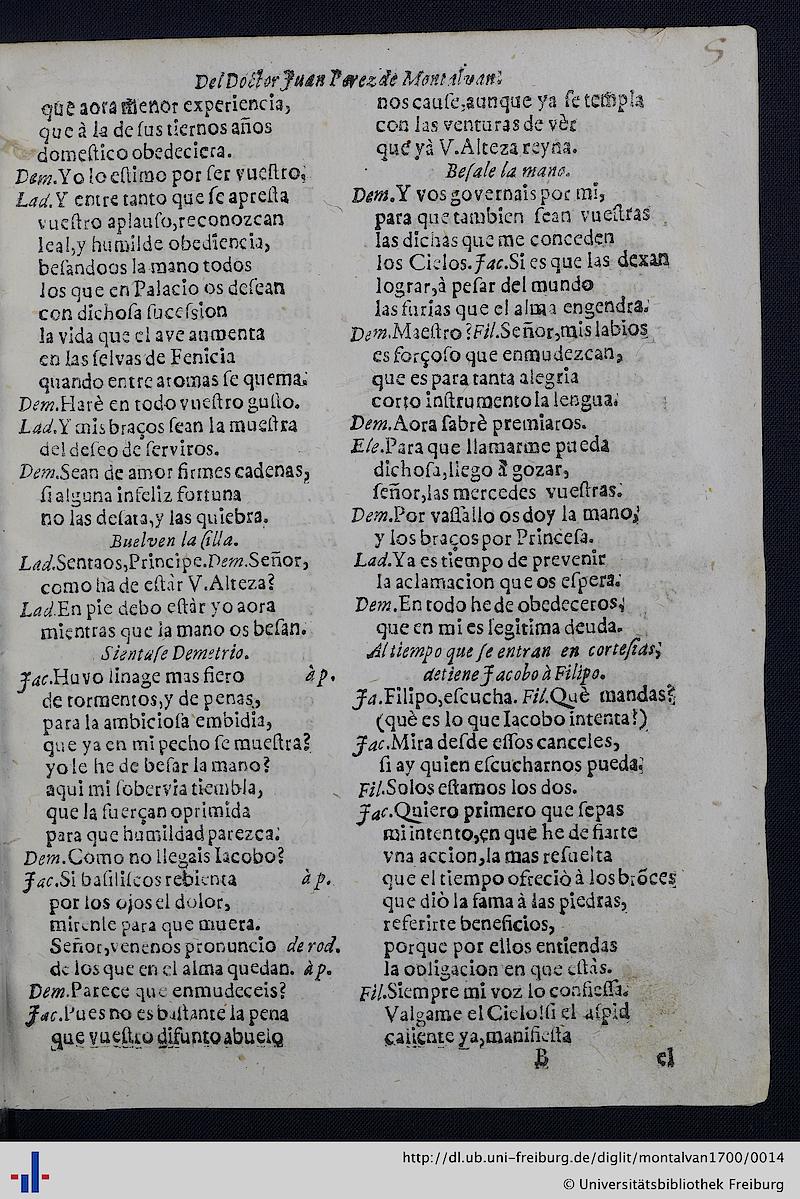 5
Del Doctor Juan Perez de Montalvan.
que aora menor experiencia,
que à la de sus tiernos años
domestico obedeciera.
Dem.Yo lo estimo por ser vuestro;
Lad.Y entre tanto que se apresta
vuestro aplauso,reconozcan
leal,y humilde obediencia,
besandoos la mano todos
los que en Palacio os desean
con dichosa sucession
la vida que el ave aumenta
en las selvas de Fenicia
quando entre aromas se quema.
Dem.Harè en todo vuestro gusto.
Lad.Y mis braços sean la muestra
del deseo de serviros.
Dem.Sean de amor firmes cadenas,
si alguna infeliz fortuna
no las desata,y las quiebra.
Buelven la silla.
Lad.Sentaos,Principe.Dem.Señor,
como ha de estàr V.Alteza?
Lad.En pie debo estàr yo aora
mientras que la mano os besan.
Sientase Demetrio.
Jac.Huvo linage mas fiero àp.
de tormentos,y de penas,
para la ambiciosa embidia,
que ya en mi pecho se muestra?
yo le he de besar la mano?
aqui mi sobervia tiembla,
que la fuerçan oprimida
para que humildad parezca.
Dem.Como no llegais Iacobo?
Jac.Si basiliscos rebienta àp.
por los ojos el dolor,
mirenle para que muera.
Señor,venenos pronuncio de rod.
de los que en el alma quedan. àp.
Dem.Parece que enmudeceis?
Jac.Pues no es bastante la pena
que vuestro difunto abuelo
nos cause,aunque ya se templa
con las venturas de vèr
que yà V.Alteza reyna.
Besale la mano.
Dem.Y vos governais por mi,
para que tambien sean vuestras
las dichas que me conceden
los Cielos.Jac.Si es que las dexan
lograr,à pesar del mundo
las furias que el alma engendra.
Dem.Maestro?Fil.Señor,mis labios
es forçoso que enmudezcan,
que es para tanta alegria
corto instrumento la lengua.
Dem.Aora sabrè premiaros.
Ele.Para que llamarme pueda
dichosa,llego à gozar,
señor,las mercedes vuestras.
Dem.Por vassallo os doy la mano,
y los braços por Princesa.
Lad.Ya es tiempo de prevenir
la aclamacion que os espera.
Dem.En todo he de obedeceros,
que en mi es legitima deuda.
Al tiempo que se entran en cortesias,
detiene Jacobo à Filipo.
Ja.Filipo,escucha. Fil.Què mandas?
(què es lo que Iacobo intenta?)
Jac.Mira desde essos canceles,
si ay quien escucharnos pueda.
Fil.Solos estamos los dos.
Jac.Quiero primero que sepas
mi intento,en que he de fiarte
vna accion,la mas resuelta
que el tiempo ofreciò à los brõces
que diò la fama à las piedras,
referirte beneficios,
porque por ellos entiendas
la obligacion en que estàs.
Fil.Siempre mi voz lo confiessa.
Valgame el Cielo!si el aspid
caliente ya,manifiesta
B el
http://dl.ub.uni-freiburg.de/diglit/montalvan1700/0014
© Universitätsbibliothek Freiburg